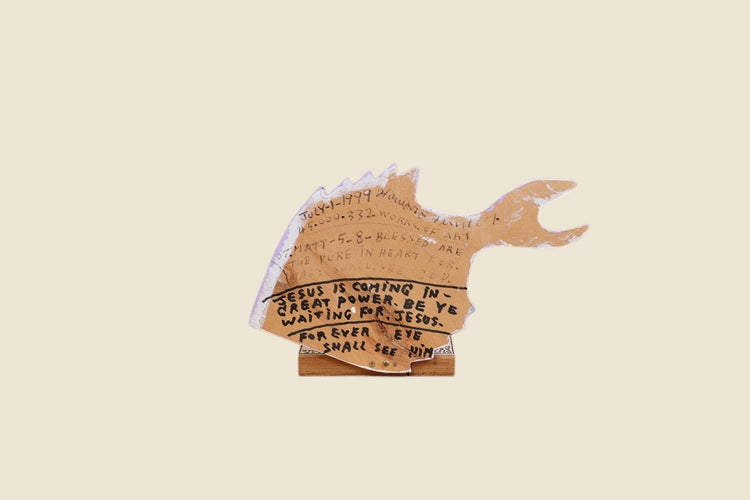 JULY-1-1999
45.000.332 WORKS OF ART
ST. MATT-5-8-BLESSED ARE
THE PURE IN HEART FOR.
THEY SHALL SEE GOD.
JESUS IS COMING IN-
GREAT POWER. BE YE
WAITING FOR. JESUS.
FOR EVER EYE
SHALL SEE HIM